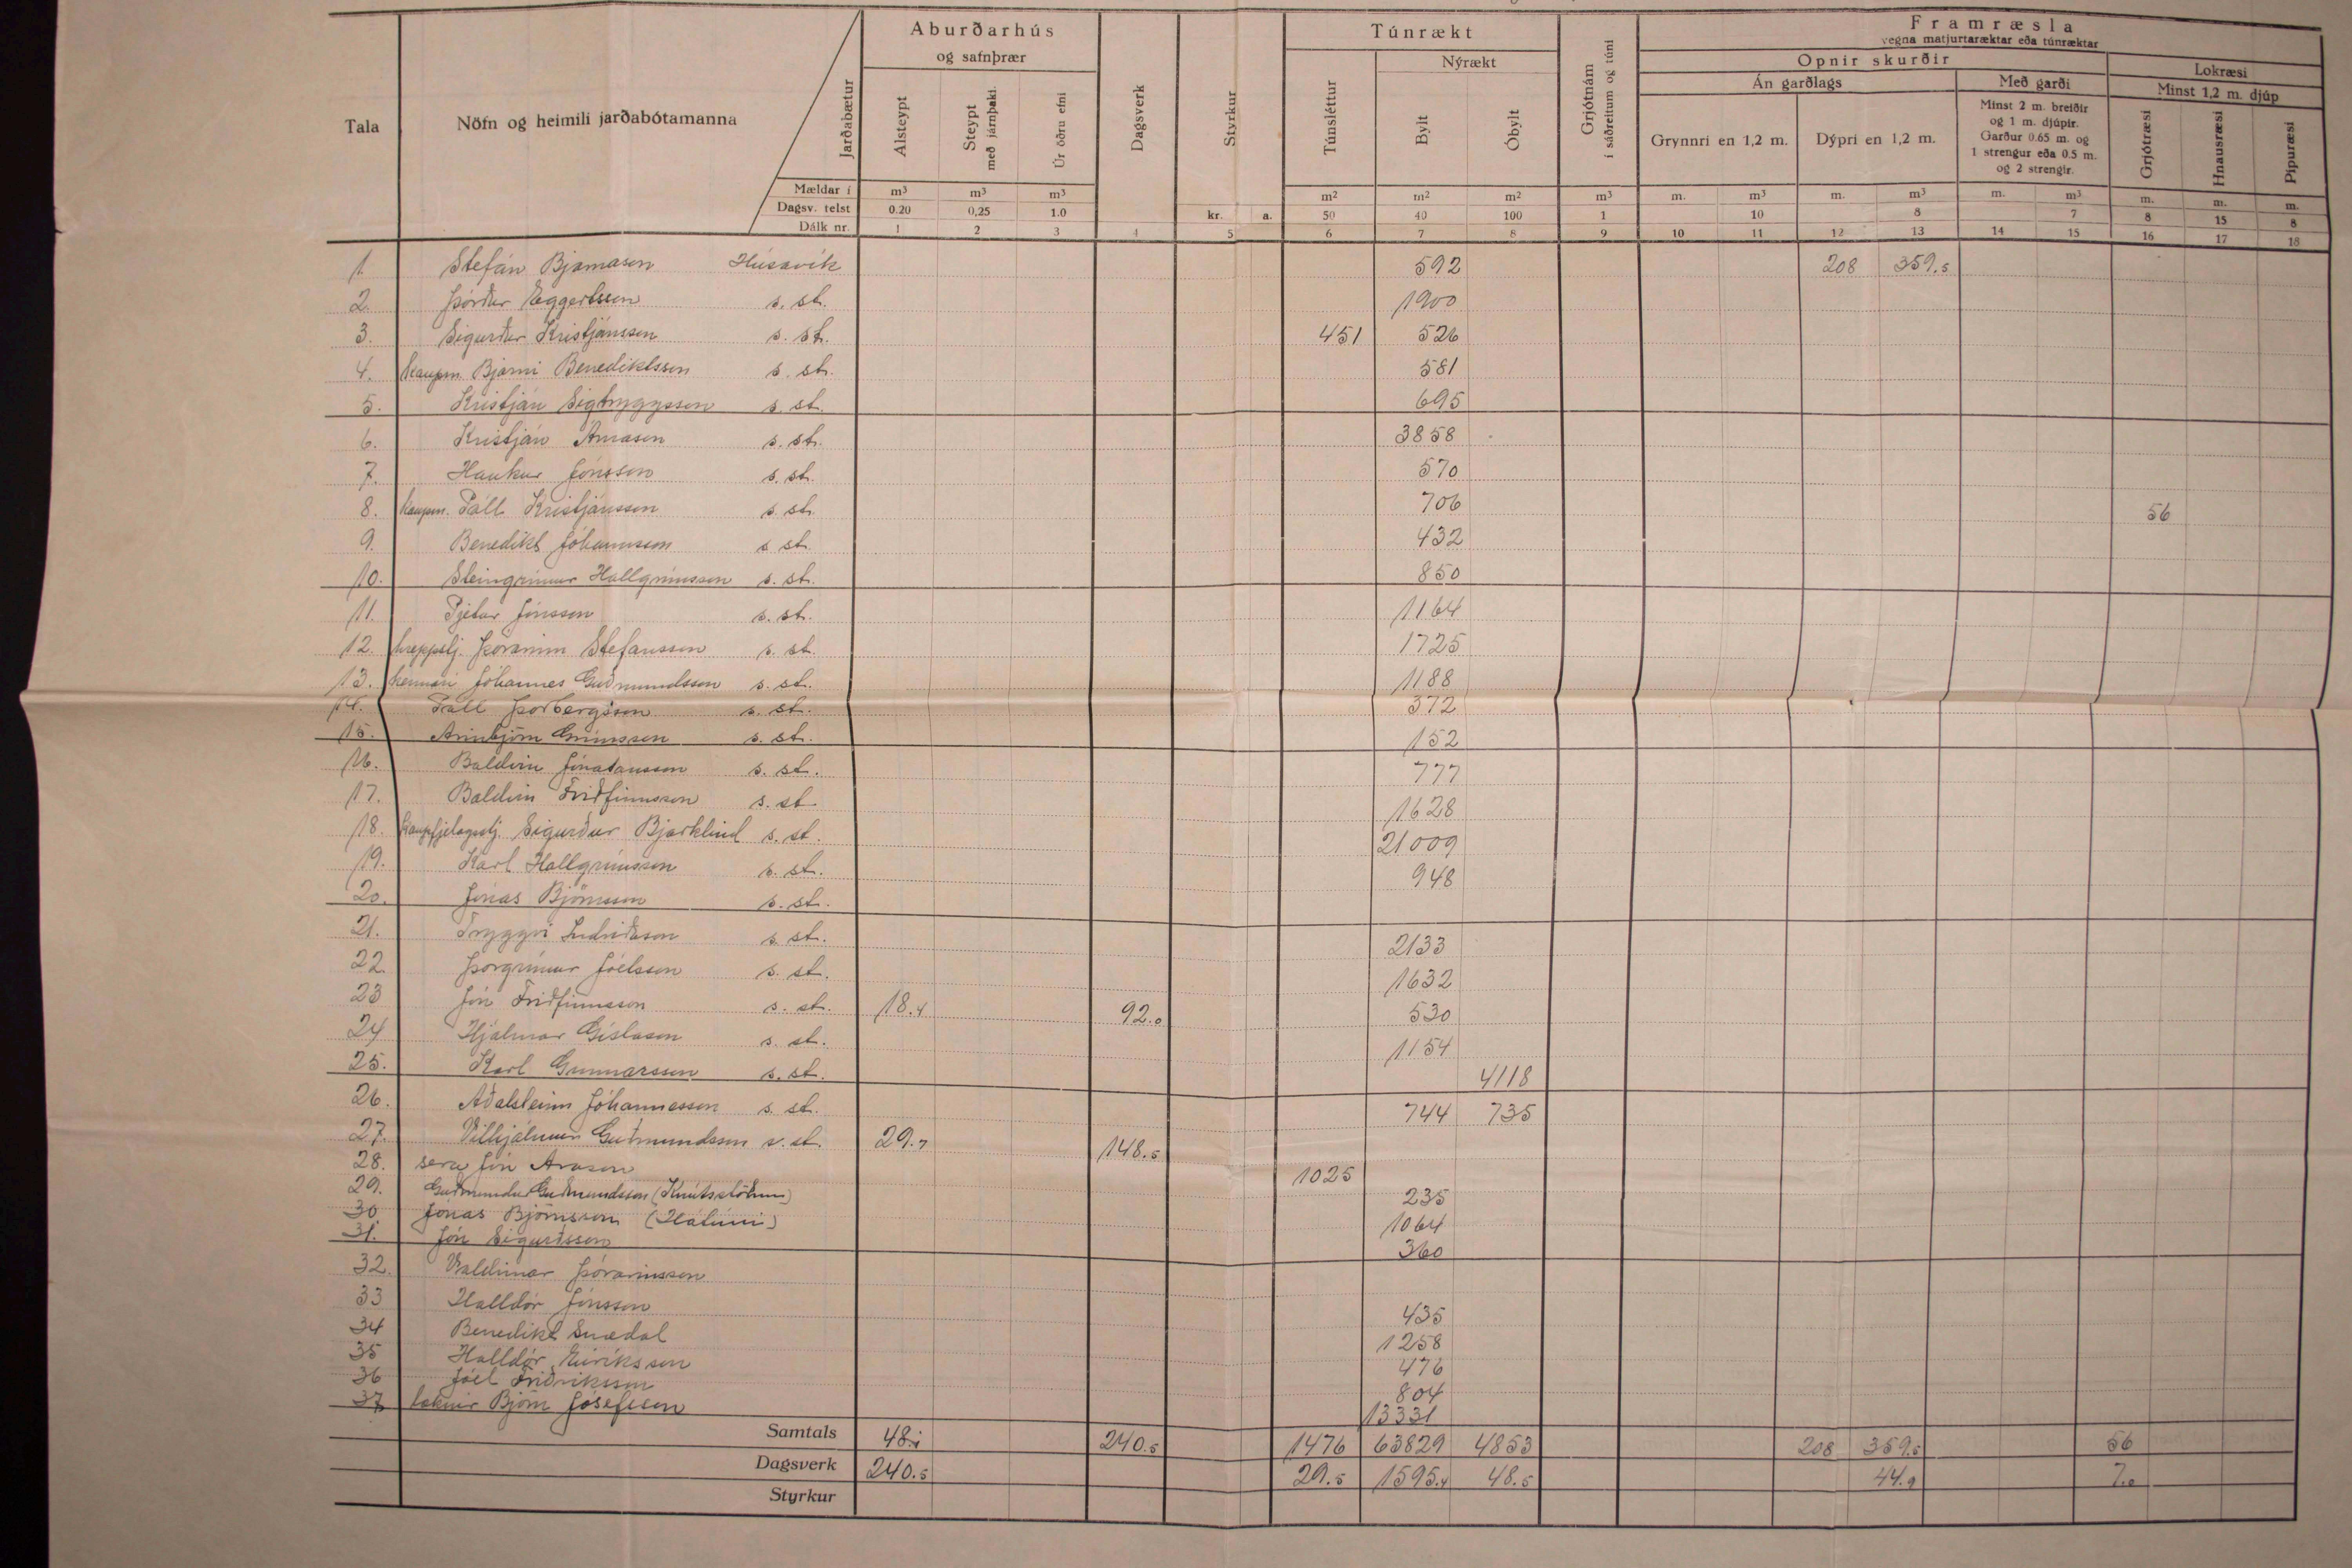 Aburðarhús
og safnþrær
Túnrækt
Framræsla
vegna matjurtaræktar eða túnræktar
Nýrækt
Opnir skurðir
Lokræsi
Án garðlags
Með garði
Minst 1,2 m. djúp
Tala
Nöfn og heimili jarðabótamanna
Jarðabætur
Alsteypt
Steypt með járnþaki.
Úr öðru efni
Dagsverk
Styrkur
Túnsléttur
Bylt
Óbylt
Grjótnám í sáðreitum og túni
Grynnri en 1,2 m.
Dýpri en 1,2 m.
Minst 2 m. breiðir
og 1 m. djúpir.
Garður 0.65 m. og
1 strengur eða 0.5 m.
og 2 strengir.
Grjótræsi
Hnausræsi
Pípuræsi
Mældar í m³ m³ m³ m² m² m² m³ m. m³ m. m³ m. m³ m. m. m.
Dagsv. telst 0.20 0,25 1.0 kr. a. 50 40 100 1 10 8 7 8 15 8
Dálk nr. 1 2 3 4 5 6 7 8 9 10 11 12 13 14 15 16 17 18
1. Stefán Bjarnason Húsavík 592 208 359.5
2. Þórður Eggertsson s. st. 1900
3. Sigurður Kristjánsson s. st. 451 526
4. Kaupm. Bjarni Benediktsson s. st. 581
5. Kristján Sigtryggsson s. st. 695
6. Kristján Árnason s. st. 3858
7. Haukur Jónsson s. st. 570
8. Kaupm. Páll Kristjánsson s. st. 706 56
9. Benedikt Jóhannsson s. st. 432
10. Steingrímur Hallgrímsson s. st. 850
11. Pjetur Jónsson s. st. 1164
12. hreppstj. Þórarinn Stefánsson s. st. 1725
13. kennari Jóhannes Guðmundsson s. st. 1188
14. Páll Þorbergsson s. st. 372
15. Arinbjörn Grímsson s. st. 152
16. Baldvin Jónatansson s. st. 777
17. Baldvin Friðfinnsson s. st. 1628
18. Kaupfjelagsstj. Sigurður Bjarklind s. st. 21009
19. Karl Hallgrímsson s. st. 948
20. Jónas Björnsson s. st.
21. Tryggvi Indriðason s. st. 2133
22. Þorgrímur Jóelsson s. st. 1632
23 Jón Friðfinnsson s. st. 18.4 92.0 530
24 Hjálmar Gíslason s. st. 1154
25. Karl Gunnarsson s. st. 4118
26. Aðalsteinn Jóhannesson s. st. 744 735
27. Vilhjálmur Guðmundsson s. st. 29.7 148.5
28. sera Jón Arason 1025
29. Guðmundur Guðmundsson (Knútsstöðum) 235
30 Jónas Björnsson (Hátúni) 1064
31. Jón Sigurðsson 360
32. Valdimar Þórarinsson
33 Halldór Jónsson 435
34 Benedikt Snædal 1258
35 Halldór Eiríksson 476
36 Jóel Friðriksson 804
37 læknir Björn Jósefsson 13331
Samtals 48.1 240.5 1476 63829 4853 208 359.5 56
Dagsverk 240.5 29.5 1595.4 48.5 44.9 7.0
Styrkur